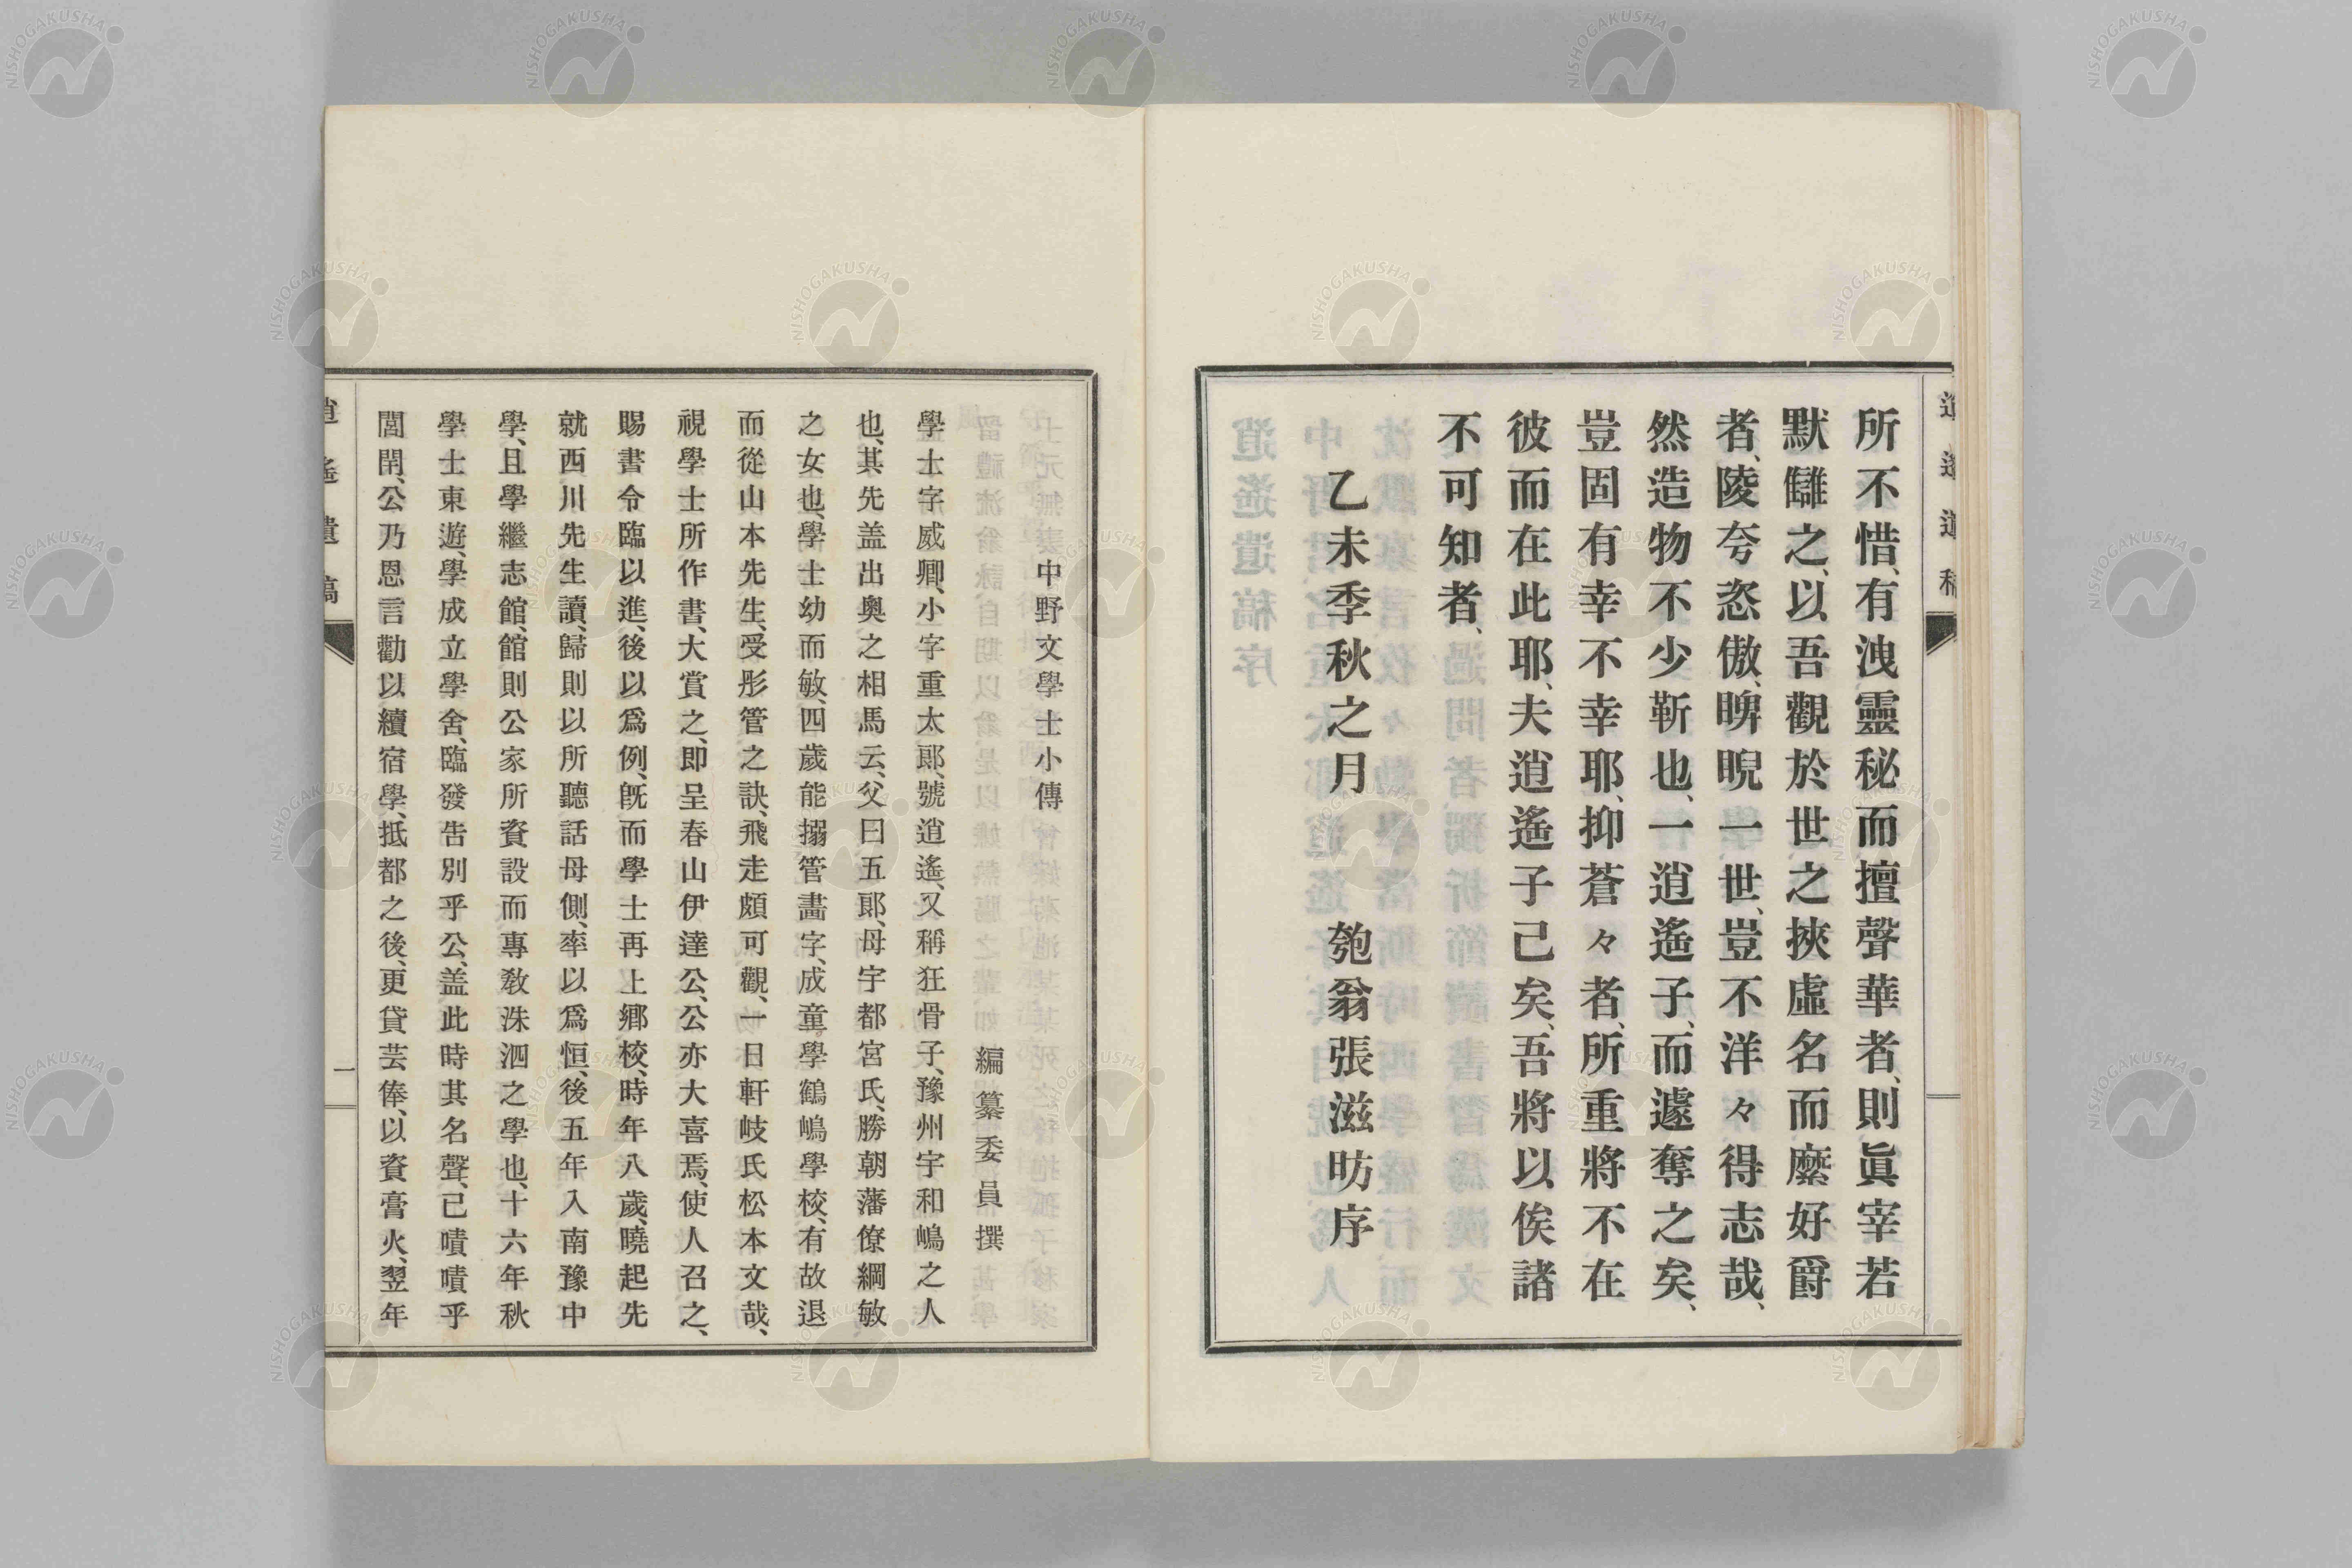 逍遙遺稿
所不惜、有洩靈秘而擅聲華者、則眞宰若
默讎之、以吾觀於世之挾虛名而縻好爵
者、陵夸恣傲、睥睨一世、豈不洋々得志哉、
然造物不少靳也、一逍遙子、而遽奪之矣、
豈固有幸不幸耶、抑蒼々者、所重將不在
彼而在此耶、夫逍遙子已矣、吾將以俟諸
不可知者、
乙未季秋之月 匏翁張滋昉序
中野文學士小傳
編纂委員撰
學士字威卿、小字重太郞、號逍遙、又稱狂骨子、豫州宇和嶋之人
也、其先盖出奧之相馬云、父曰五郞、母宇都宮氏、勝朝藩僚綱敏
之女也、學士幼而敏、四歲能搦管畵字、成童、學鶴嶋學校、有故退
而從山本先生、受彤管之訣、飛走頗可觀、一日軒岐氏松本文哉、
視學士所作書、大賞之、即呈春山伊達公、公亦大喜焉、使人召之、
賜書令臨以進、後以爲例、旣而學士再上鄕校、時年八歲、曉起先
就西川先生讀、歸則以所聽、話母側、率以爲恒、後五年入南豫中
學、且學繼志館、館則公家所資設而專敎洙泗之學也、十六年秋
學士東遊、學成立學舍、臨發告別乎公、盖此時其名聲、已嘖嘖乎
閭閈、公乃恩言勸以續宿學、抵都之後、更貸芸俸、以資膏火、翌年
逍遙遺稿
一
NISHOGAKUSHA